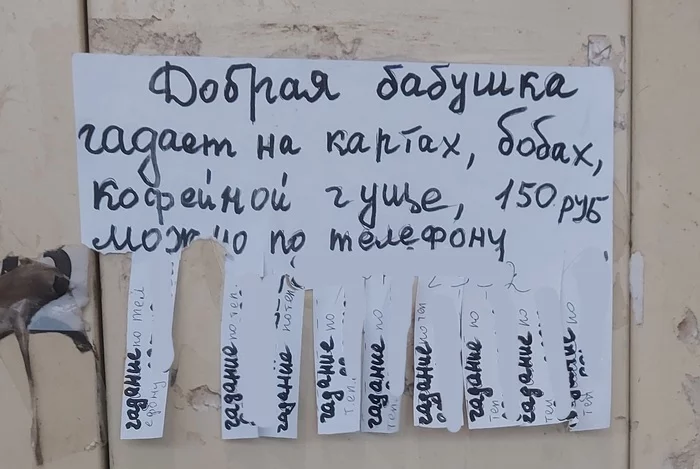 Добрая бабушка
гадает на картах, бобах,
кофейной гуще, 150 руб
можно по телефону
гадание по тел
едону
гадание по тел.
гадание по тел.
гадание по
тел.
гадание по
тел
гадание по тел
гадание по
тел
гадание по
тел
по
тел